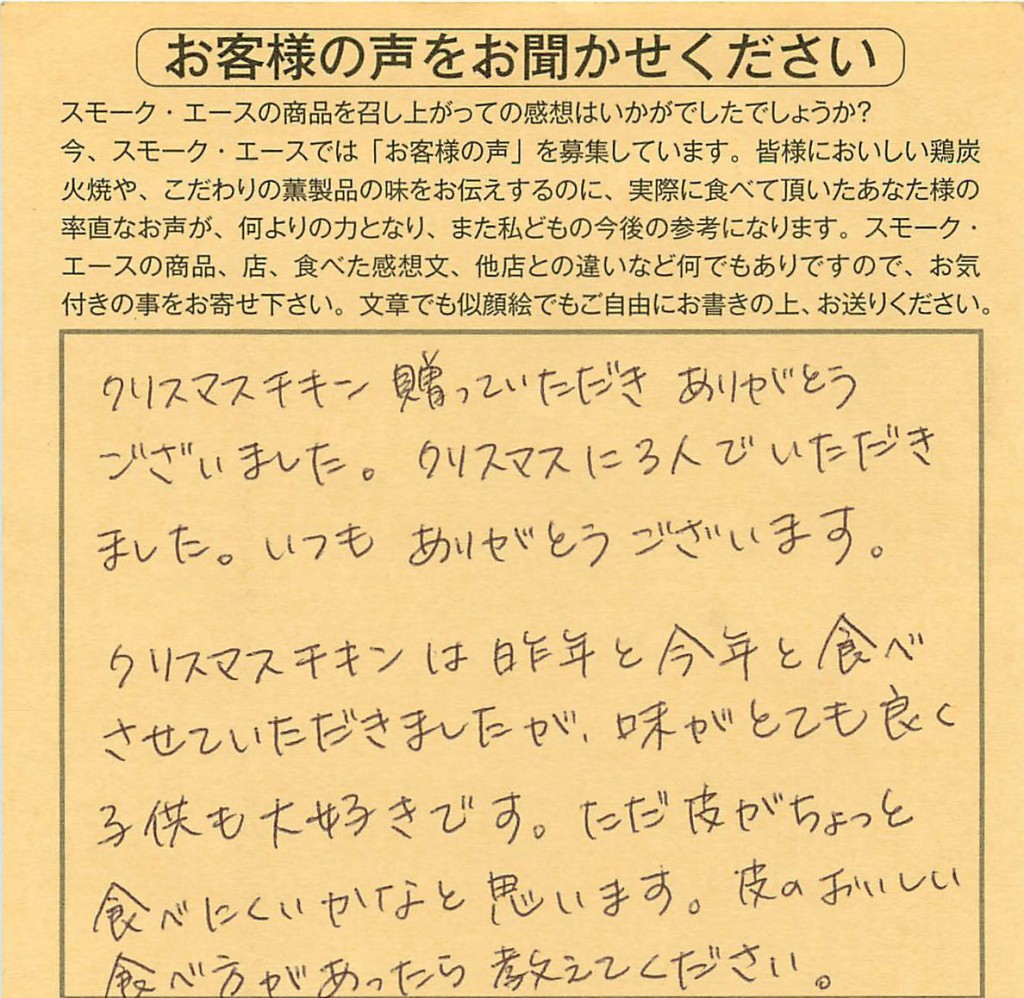 お客様の声をお聞かせください
スモーク・エースの商品を召し上がっての感想はいかがでしたでしょうか?
今、スモーク・エースでは「お客様の声」を募集しています。皆様においしい鶏炭
火焼や、こだわりの薫製品の味をお伝えするのに、実際に食べて頂いたあなた様の
率直なお声が、何よりの力となり、また私どもの今後の参考になります。スモーク・
エースの商品、店、食べた感想文、他店との違いなど何でもありですので、お気
付きの事をお寄せ下さい。文章でも似顔絵でもご自由にお書きの上、お送りください。
クリスマスチキン 贈っていただき ありがとう
ございました。クリスマスに3人でいただき
ました。いつも ありがとうございます。
クリスマスチキンは昨年と今年と食べ
させていただきましたが、味がとても良く
子供も大好きです。ただ皮がちょっと
食べにくいかなと思います。皮のおいしい
食べ方があったら教えてください。